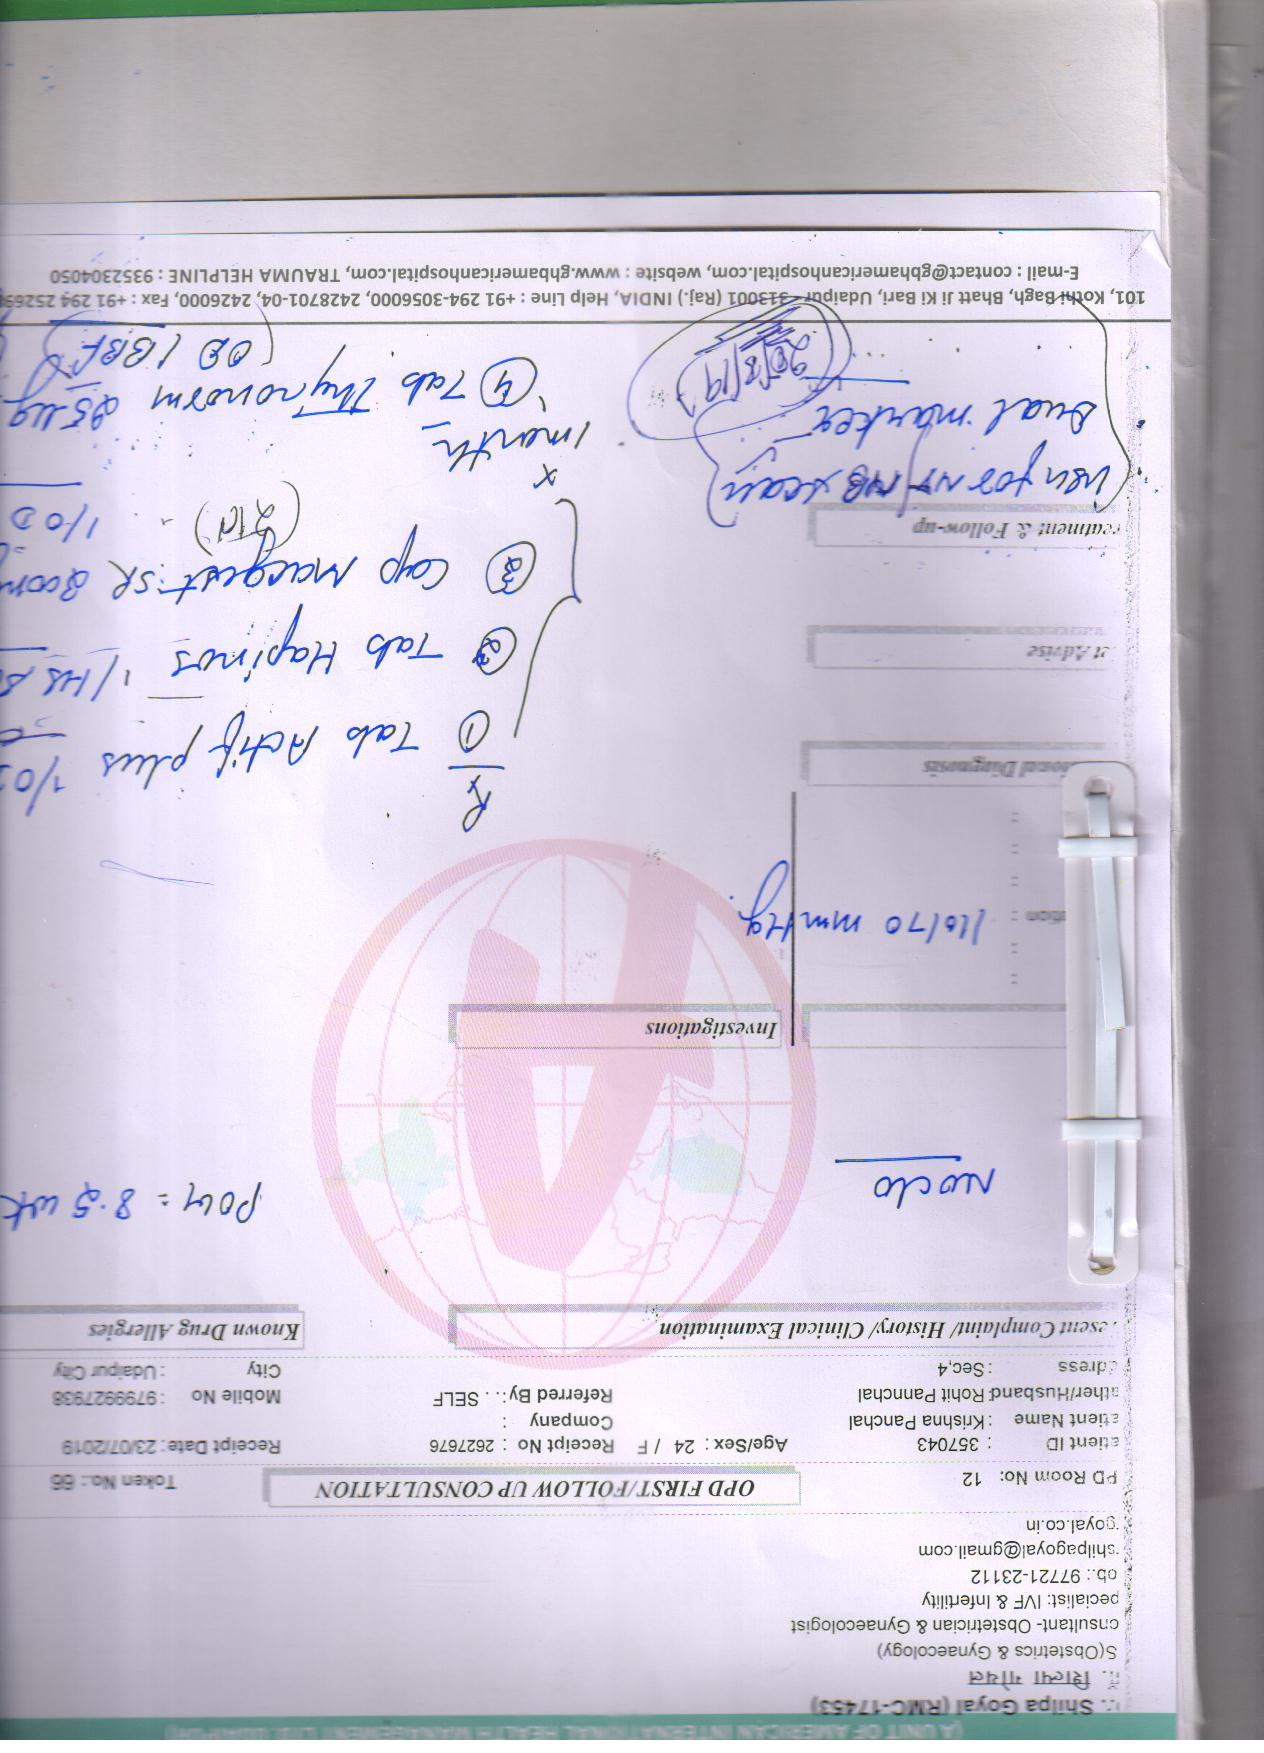 (A UNIT OF AMERICAN INTERNATIONAL HEALTH MANAGEMENT LTD. UDAIPUR)
Shilpa Goyal (RMC-17453)
शिल्पा गोयल
S(Obstetrics & Gynaecology)
onsultant- Obstetrician & Gynaecologist
pecialist: IVF & Infertility
ob.: 97721-23112
shilpagoyal@gmail.com
goyal.co.in
PD Room No: 12
OPD FIRST/FOLLOW UP CONSULTATION
Token No.: 66
atient ID : 357043
Age/Sex : 24 / F
Receipt No : 2627676
Receipt Date : 23/07/2019
atient Name : Krishna Panchal
Company :
ather/Husband: Rohit Pannchal
Referred By: . . SELF
Mobile No : 9799927938
ddress : Sec,4
City : Udaipur City
esent Complaint/ History/ Clinical Examination
Known Drug Allergies
No c/o
POG = 8.5 wk
Investigations
110/70 mmHg
sional Diagnosis
Rx
① Tab Actif plus 1/OD
② Tab Hapinos 1/HS
et Advise
③ Cap Macgest-SR 200m
(210) 1/OD
x
1 month
reatment & Follow-up
usn for NT/NB scan
Dual marker
20/8/19
④ Tab Thyronorm 25 ug
(OD/BBF)
101, Kothi Bagh, Bhatt Ji Ki Bari, Udaipur - 313001 (Raj.) INDIA, Help Line : +91 294-3056000, 2428701-04, 2426000, Fax : +91 294 252696
E-mail : contact@gbhamericanhospital.com, website : www.gbhamericanhospital.com, TRAUMA HELPLINE : 9352304050